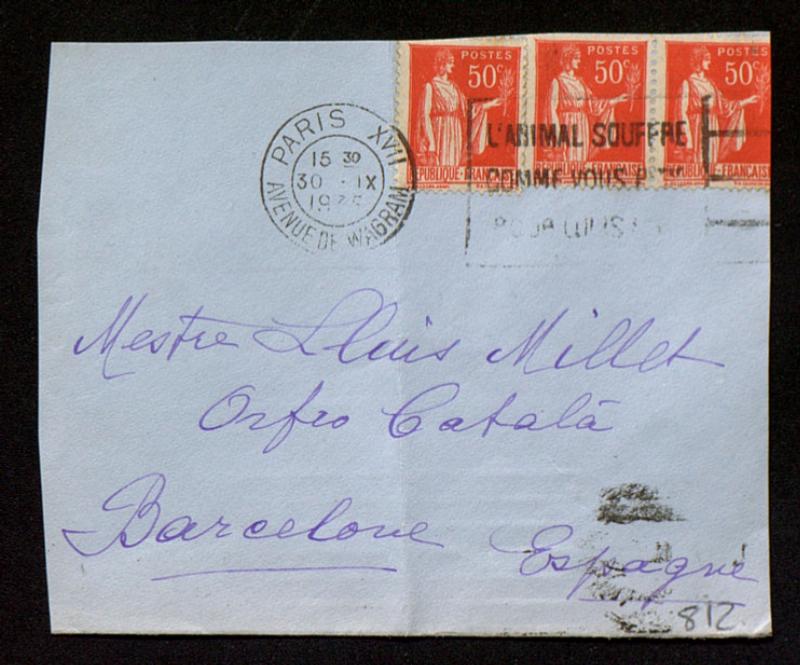 POSTES
50c
RÉPUBLIQUE-FRANÇAISE
POSTES
50c
RÉPUBLIQUE-FRANÇAISE
POSTES
50c
RÉPUBLIQUE-FRANÇAIS
PARIS XVII
15 30
30 - IX
AVENUE DE WAGRAM
L'ANIMAL SOUFFRE
COMME VOUS
Mestre Lluis Millet
Orfeo Català
Barcelone
Espagne
812